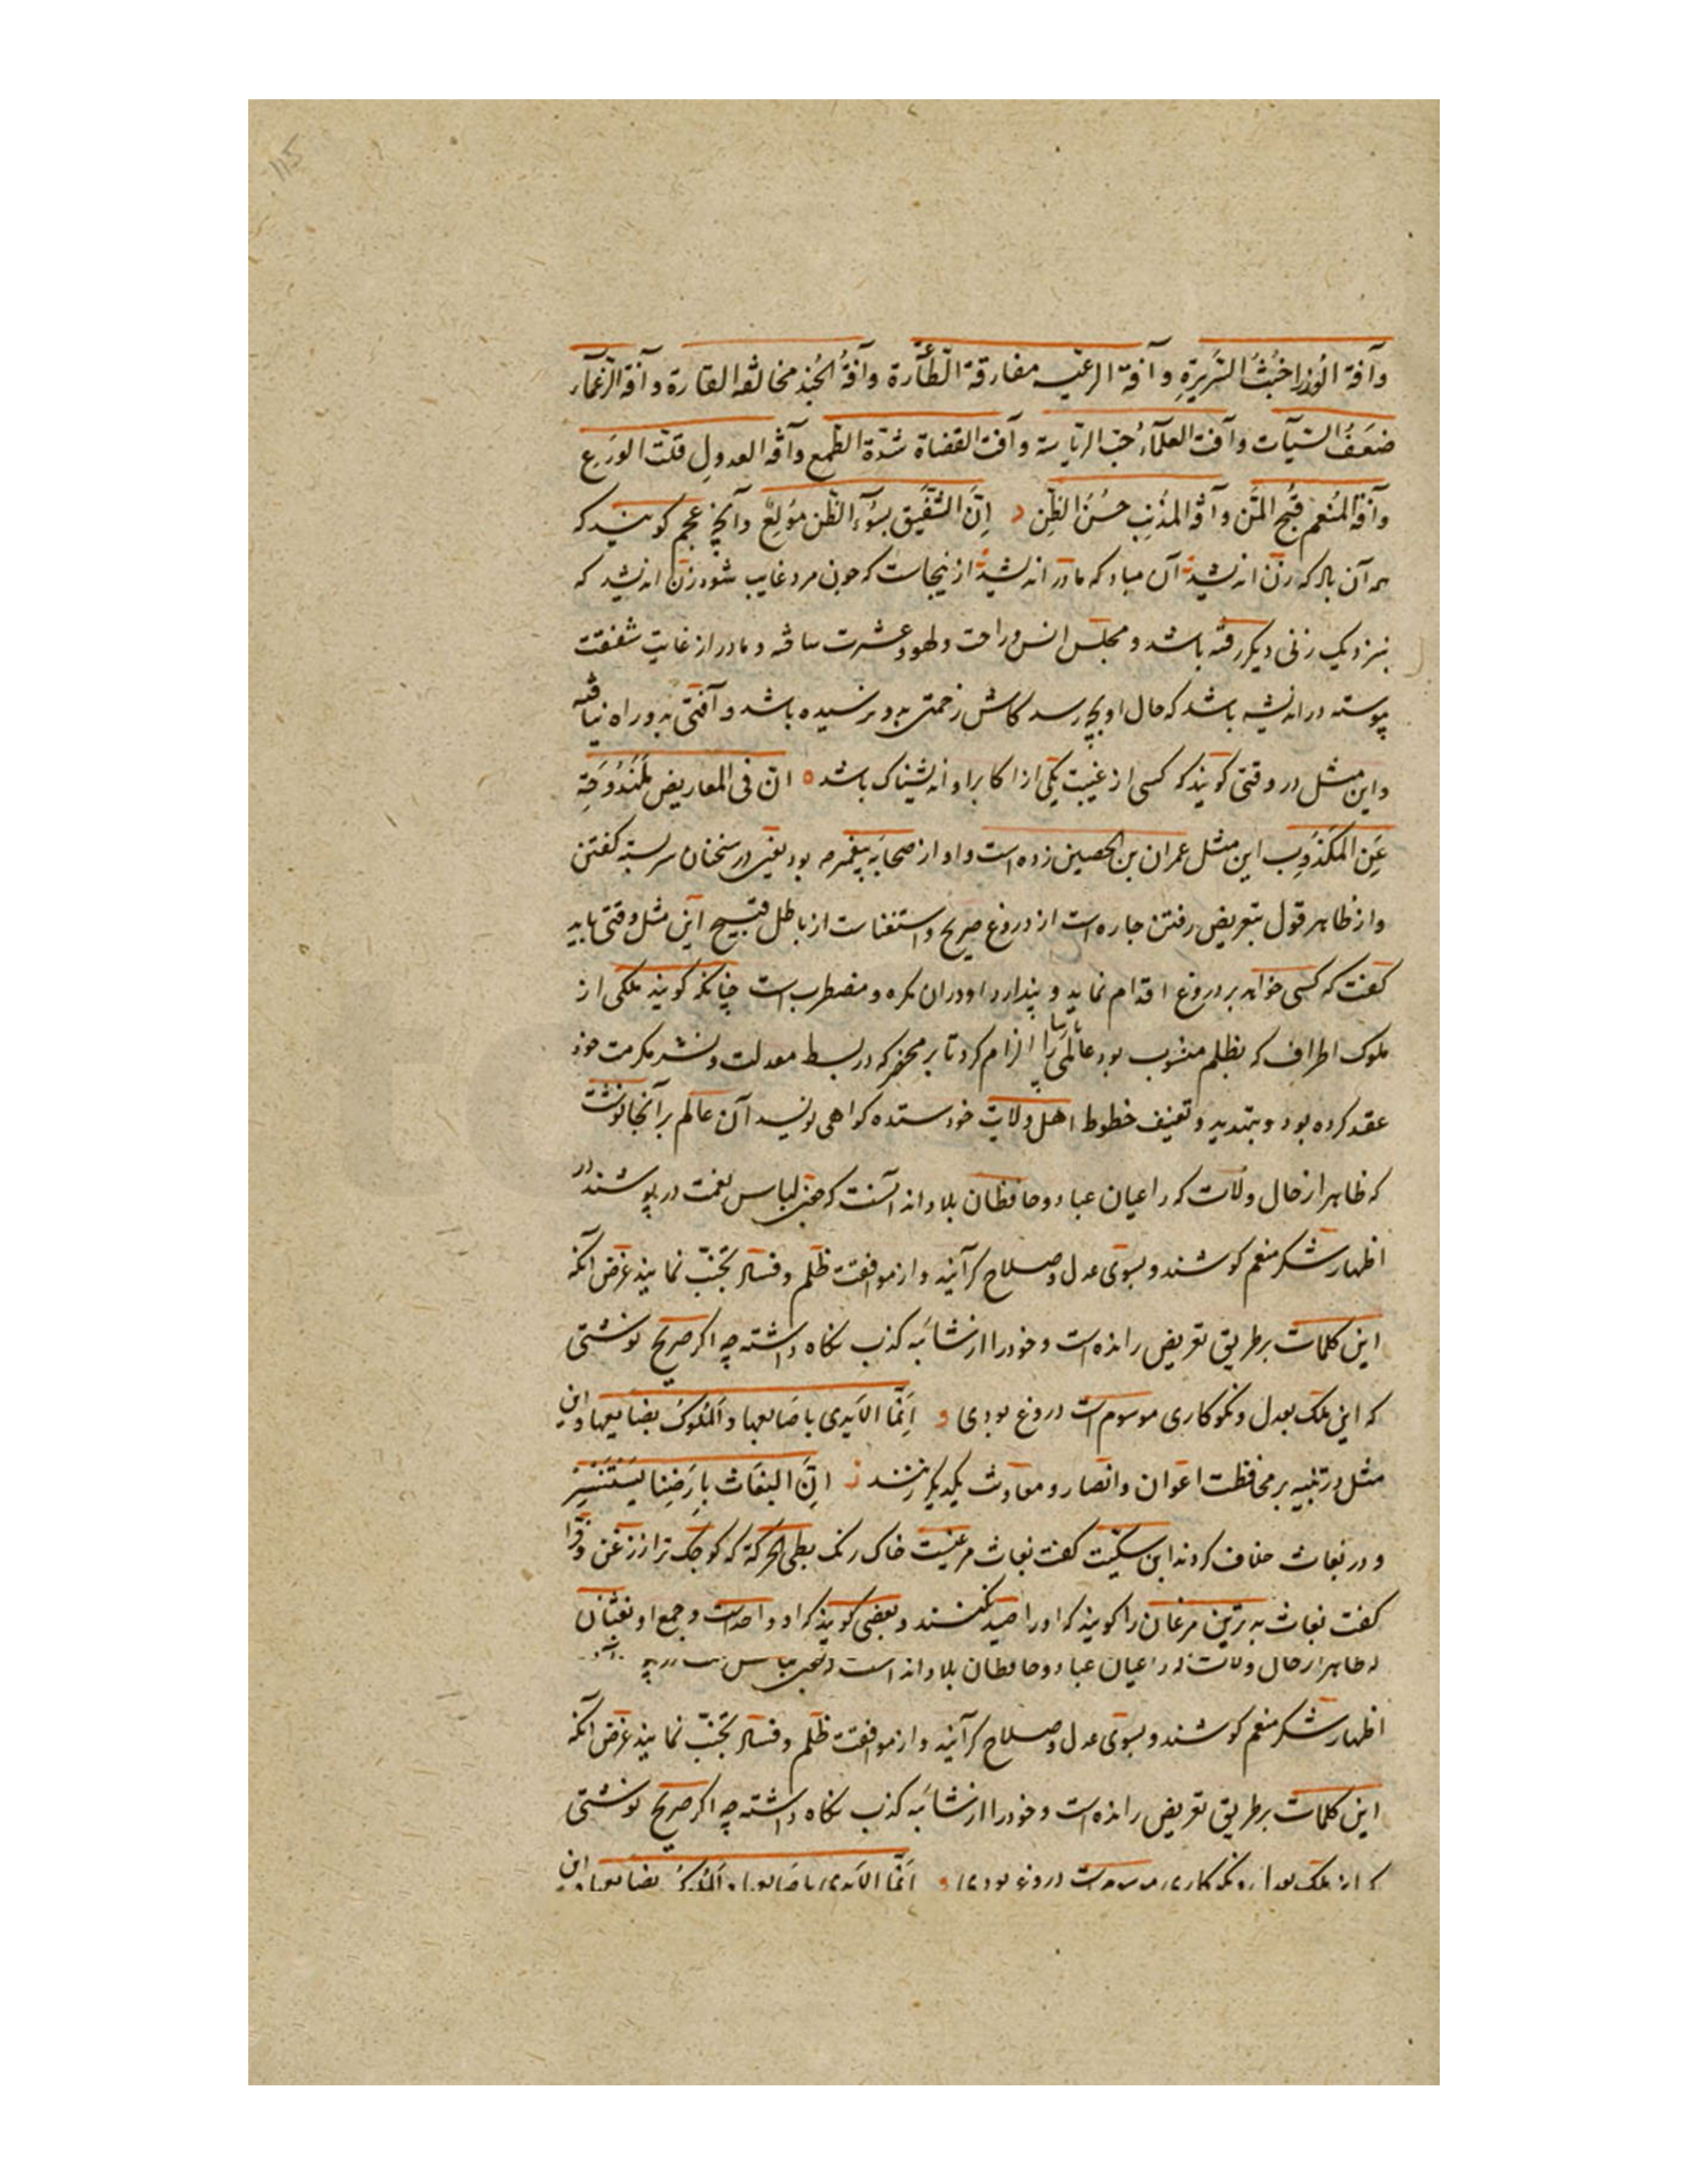 وآفة الوُزرا خُبثُ السَّریرَةِ و آفة الرعیّه مفارقة الطّآعَرة وآفةُ الجُند مخالفه القارة وآفة الزعمآء
ضَعَفُ السّیآت وآفت العلمآءِ حُبّ الریاسة وآفت القضاة شدّة الطّمع وآفة العدولِ قلّت الوَرَع
وآفة المُنعم قُبحُ المَنّ وآفة المُذنِب حُسنُ الظنّ د اِنَّ الشَّفیق بسُوءِ الظنّ مُولِعٌ وآنچ عجم کویند که
همه آن باد که زن اندیشد آن مباد که مادر اندیشد ازینجاست که چون مرد غایب شود زن اندیشد که
بنزدیک زنی دیکر رفته باشد و مجلس انس و راحت و لهو و عشرت ساخته و مادر از غایت شفقت
پیوسته در اندیشه باشد که حال او بچ رسد کاش زحمتی بدو نرسیده باشد و آفتی بدو راه نیافته
واین مثل در وقتی کویند که کسی از غیبت یکی از اکابر اواندیشناک باشد ٥ انّ فی المعاریض لَمَندُوحَةِ
عَنِ المَکذُوِب این مثل عمران بن الحصین زده است و او از صحابه پیغمبر م بود یعنی در سخنان سربسته کفتن
واز ظاهر قول بتعریض رفتن چاره است از دروغ صریح و استغناست از باطل قبیح این مثل وقتی باید
کفت که کسی خواهد بر دروغ اقدام نماید و پندارد او دران مکره و مضطرب است چنانکه کویند ملکی از
ملوک اطراف که بظلم منسوب بود عالمی را الزام کرد تا بر محضر که در بسط معدلت و نشر مکرمت خود
عقد کرده بود و بتهدید و تعنیف خطوط اهل ولایت خود ستده کواهی نویسد آن عالم بر آنجا نوشت
که ظاهر از حال ولات که راعیان عباد و حافظان بلاد اند آنست که چنین لباس نعمت در پوشند در
اظهار شکر منعم کوشند و بسوی عدل و صلاح کرآیند و از موافقت ظلم و فساد تجنّب نمایند غرض آنکه
این کلمات بر طریق تعریض رانده است و خود را از شائبه کذب نکاه داشته چه اکر صریح نوشتی
که این ملک بعدل و نکوکاری موسوم است دروغ بودی و اِنَّمَا الاَیدی باصَابعها وَالمُلوکُ بصَنایعها واین
مثل در تنبیه بر محافظت اعوان وانصار و معاونت یکدیکر زنند ز اِنَّ البغَاث بِارَضِنا یَستَنسِرُ
و در بغاث خلاف کردند ابن سکّیت کفت بغاث مرغیست خاک رنک بطی الحرکة که کوچک تر از زغن و فرّا
کفت بغاث بدترین مرغان را کویند که او را صید نکنند و بعضی کویند که او واحد است و جمع او بغثان
که ظاهر از حال ولات که راعیان عباد و حافظان بلاد اند است
اظهار شکر منعم کوشند و بسوی عدل و صلاح کرآیند و از موافقت ظلم و فساد تجنّب نمایند غرض آنکه
این کلمات بر طریق تعریض رانده است و خود را از شائبه کذب نکاه داشته چه اکر صریح نوشتی
که این ملک بعدل و نکوکاری موسوم است دروغ بودی و اِنَّمَا الاَیدی باصَابعها وَالمُلوکُ بصَنایعها واین